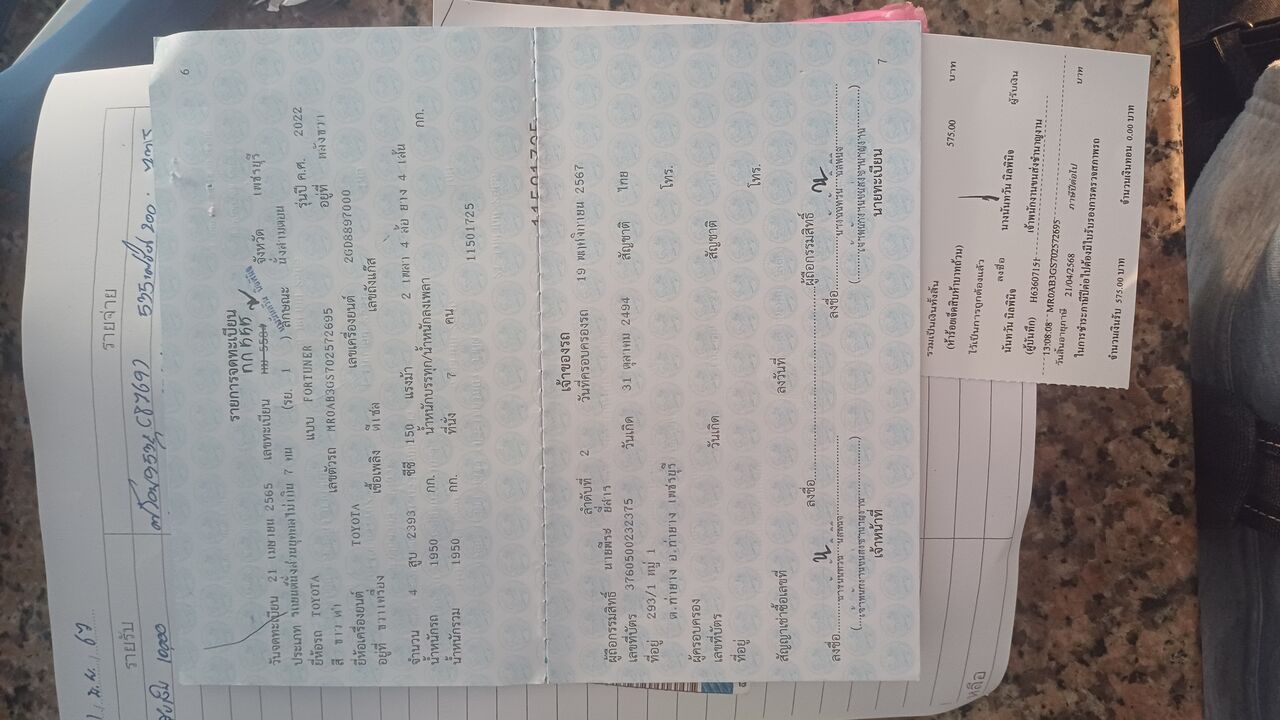 6
รายการจดทะเบียน
กกก 555
วันจดทะเบียน 21 เมษายน 2565 เลขทะเบียน จังหวัด เพชรบุรี
ประเภท รถยนต์นั่งส่วนบุคคลไม่เกิน 7 คน (รย. 1 ) ลักษณะ นั่งสามตอน
ยี่ห้อรถ TOYOTA แบบ FORTUNER รุ่นปี ค.ศ. 2022
สี ขาว ดำ เลขตัวรถ MR0AB3GS702572695 อยู่ที่ หลังขวา
ยี่ห้อเครื่องยนต์ TOYOTA เลขเครื่องยนต์ 2GD8897000
อยู่ที่ ขวาเครื่อง เชื้อเพลิง ดีเซล เลขถังแก๊ส
จำนวน 4 สูบ 2393 ซีซี 150 แรงม้า 2 เพลา 4 ล้อ ยาง 4 เส้น
น้ำหนักรถ 1950 กก. น้ำหนักบรรทุก/น้ำหนักลงเพลา กก.
น้ำหนักรวม 1950 กก. ที่นั่ง 7 คน
11501725
เจ้าของรถ
ลำดับที่ 2 วันที่ครอบครองรถ 19 พฤศจิกายน 2567
ผู้ถือกรรมสิทธิ์ นายพีระ ยี่สาร
เลขที่บัตร 3760500232375 วันเกิด 31 ตุลาคม 2494 สัญชาติ ไทย
ที่อยู่ 293/1 หมู่ 1 โทร.
ต.ท่ายาง อ.ท่ายาง เพชรบุรี
ผู้ครอบครอง
เลขที่บัตร วันเกิด สัญชาติ
ที่อยู่ โทร.
สัญญาเช่าซื้อเลขที่ ลงวันที่
ลงชื่อ ผู้ถือกรรมสิทธิ์
ลงชื่อ ลงชื่อ
เจ้าหน้าที่ นายทะเบียน
7
รวมเป็นเงินทั้งสิ้น 575.00 บาท
(ห้าร้อยเจ็ดสิบห้าบาทถ้วน)
ไว้เป็นการถูกต้องแล้ว ลงชื่อ ผู้รับเงิน
นันทวัน นิลพินิจ นางนันทวัน นิลพินิจ
(ผู้บันทึก) เจ้าพนักงานขนส่งชำนาญงาน
13:08:08 MR0AB3GS702572695
วันสิ้นอายุภาษี 21/04/2568 ภาษีปีต่อไป บาท
ในการชำระภาษีปีต่อไปต้องมีใบรับรองการตรวจสภาพรถ
จำนวนเงินรับ 575.00 บาท จำนวนเงินทอน 0.00 บาท
รายรับ รายจ่าย
10,000